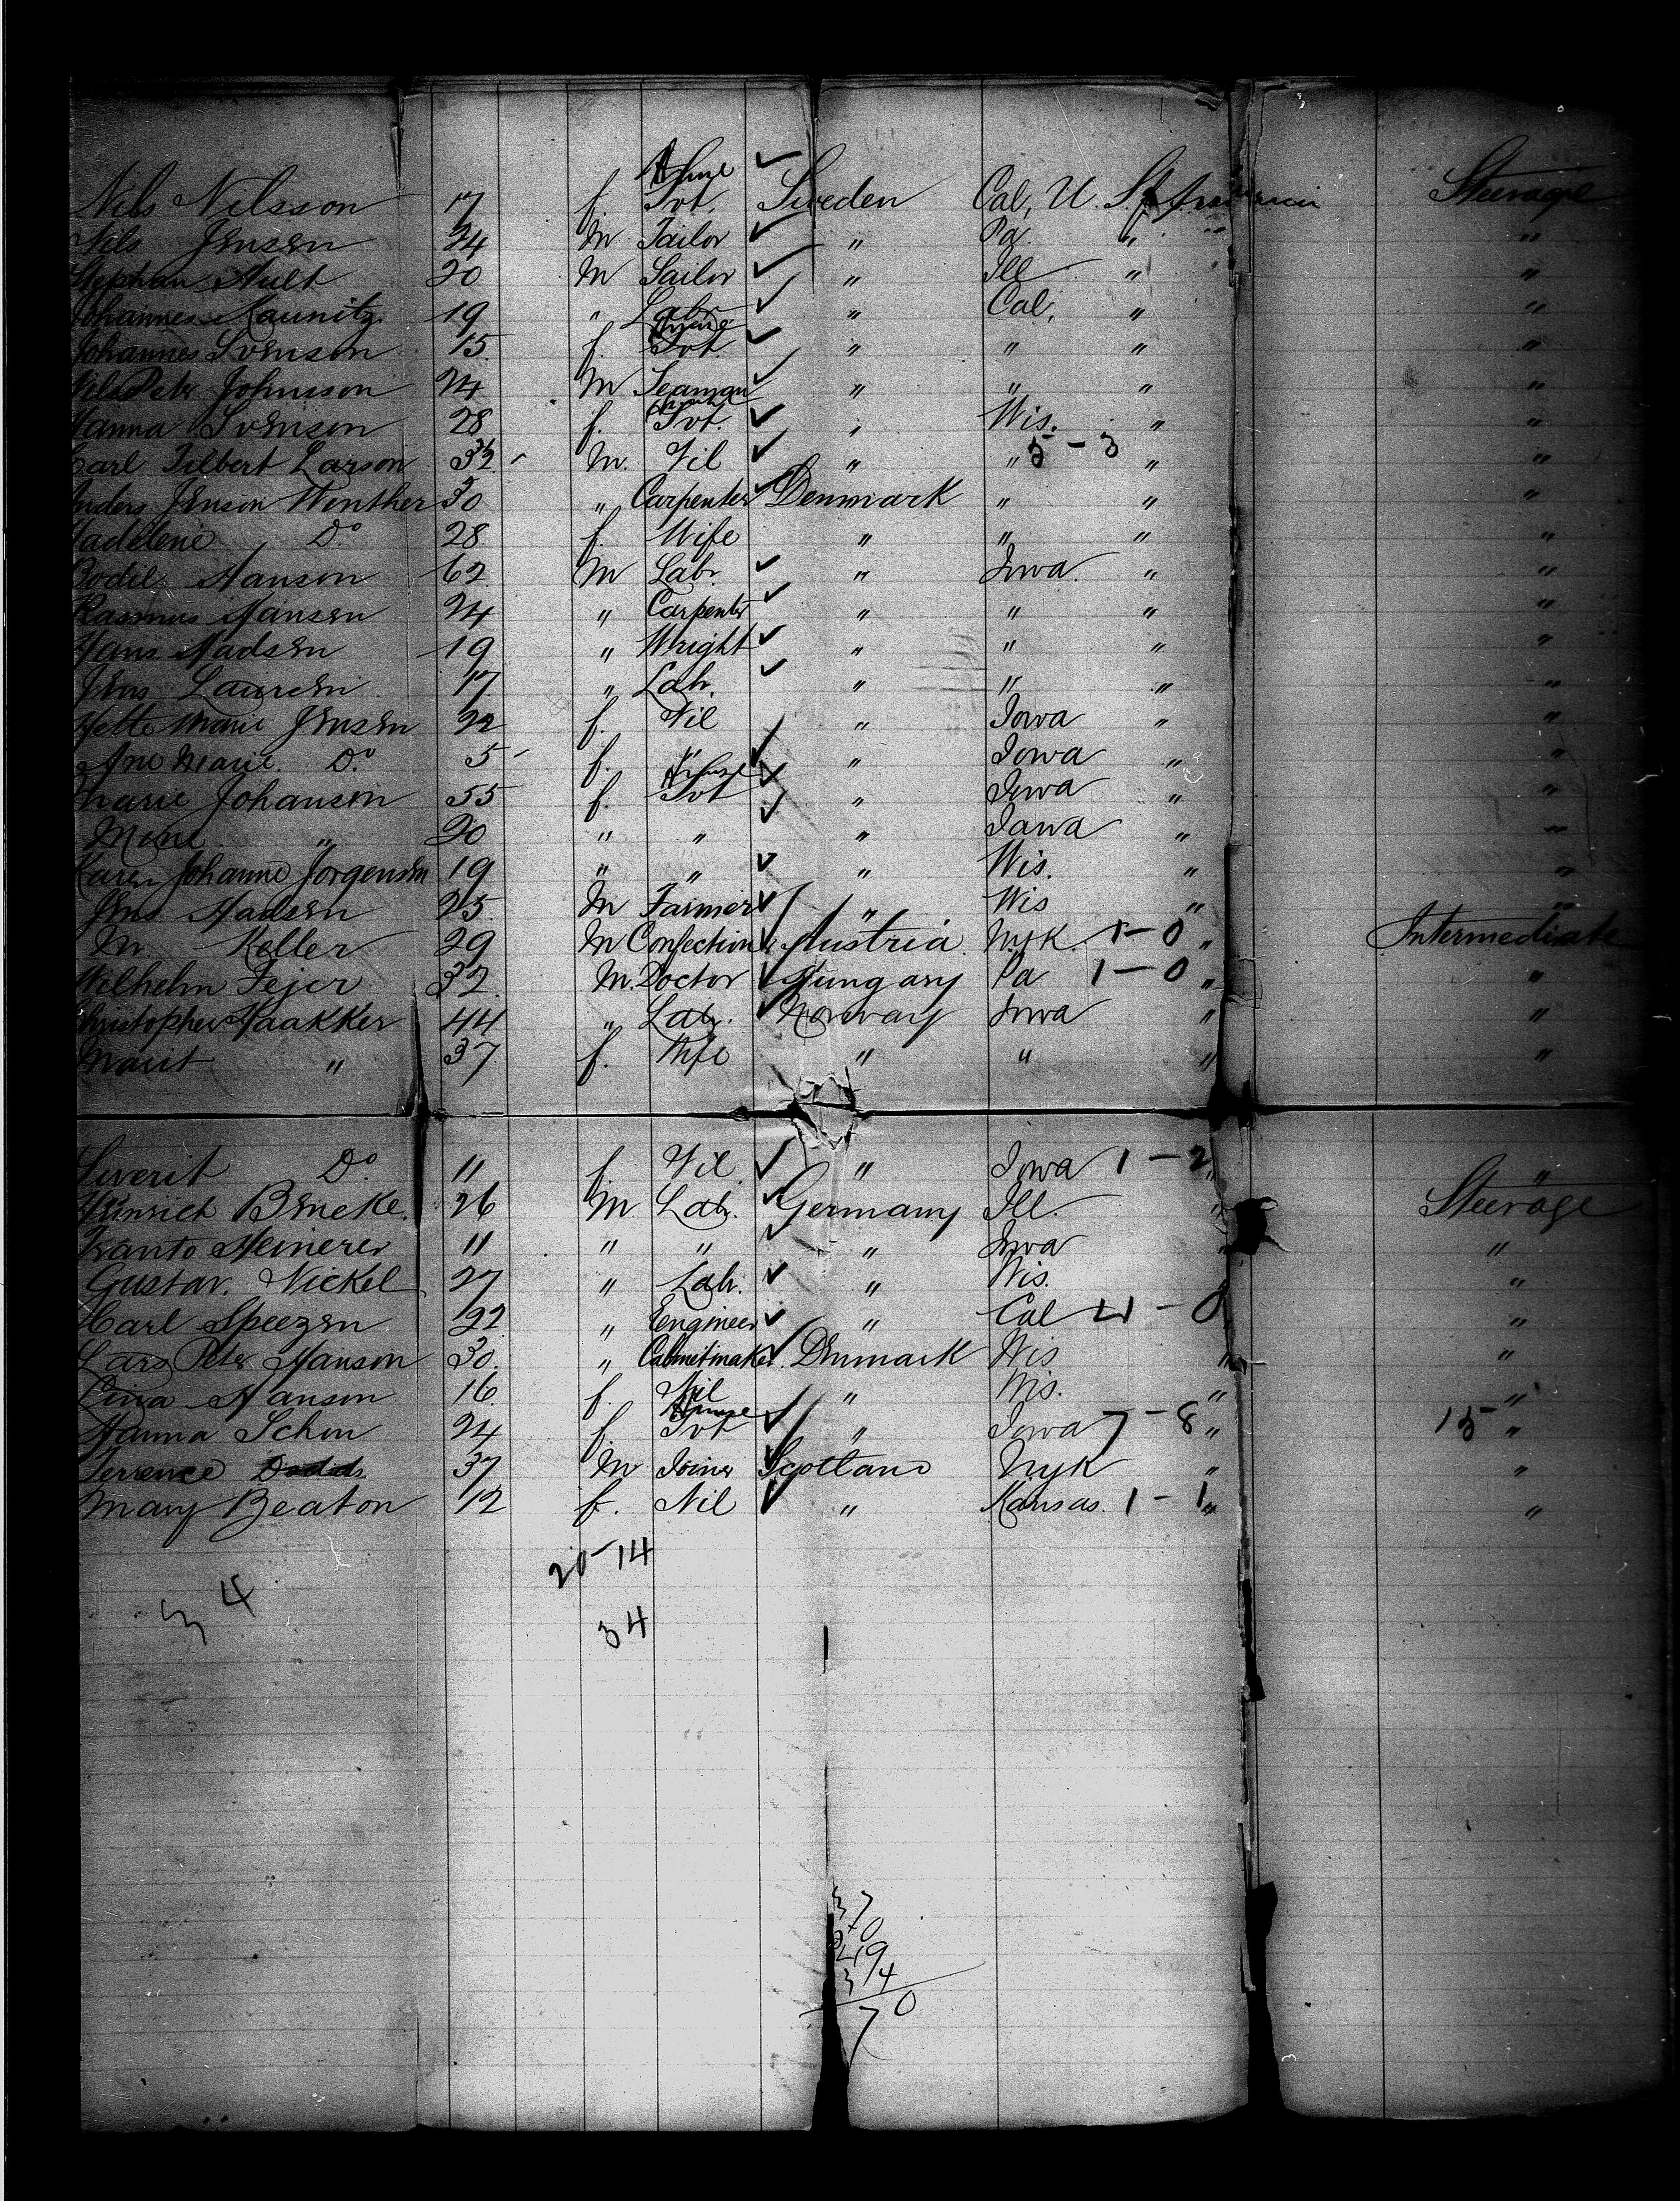 Nils Nilsson 17 f. House Svt. ✓ Sweden Cal, U. S. of America Steerage
Nils Jensen 24 M Tailor ✓ " Pa. " " "
Stephan Hult 20 M Sailor ✓ " Ill " "
Johannes Kaunitz 19 " Labr ✓ " Cal, " "
Johannes Svenson 15 f. House Svt. ✓ " " " "
Nils Peter Johnsson 24 M Seaman ✓ " " " "
Hanna Svenson 28 f. House Svt. ✓ " Wis. " "
Carl Filbert Larson 32 M. Nil ✓ " " 5 - 3 " "
Anders Jenson Winther 30 " Carpenter ✓ Denmark " " "
Madelene Do 28 f. Wife " " " "
Bodil Hanson 62 M Labr. ✓ " Iowa. " "
Rasmus Hansen 24 " Carpenter ✓ " " " "
Hans Madsen 19 " Wright ✓ " " " "
Jens Lauresen 17 " Labr. ✓ " " " "
Mette Marie Jensen 22 f. Nil " Iowa " "
Ane Marie Do 5 f. " ✓ " Iowa " "
Marie Johansen 55 f. House Svt ✓ " Iowa " "
Mine " 20 " " ✓ " Iowa " "
Karen Johanne Jorgensen 19 " " ✓ " Wis. " "
Jens Madsen 25 M Farmer ✓ " Wis " "
M. Keller 29 M Confectioner ✓ Austria N.yk. 1 - 0 " Intermediate
Wilhelm Fejer 32 M. Doctor ✓ Hungary Pa 1 - 0 " "
Christopher Haakker 44 " Labr. ✓ Norway Iowa " "
Marit " 37 f. Wife " " " "
Siverit Do 11 f. Nil ✓ " Iowa 1 - 2 " "
Heinrich Beneke 26 M Labr. ✓ Germany Ill. " Steerage
Meinerer 11 " " ✓ " Iowa " "
Gustav. Nickel 27 " Labr. ✓ " Wis. "
Carl Speezen 22 " Engineer ✓ " Cal 4 - 0 "
Lars Peter Hanson 30. " Cabinetmaker ✓ Denmark Wis " "
Lina Hanson 16 f. Nil " Wis. " "
Hanna Schou 24 f. House Svt ✓ " Iowa 7 - 8 " 15 "
Terrence Dodds 37 M Joiner ✓ Scotland N.yk " "
Mary Beaton 12 f. Nil ✓ " Kansas. 1 - 1 " "
20-14
34
34
37
19
34
70